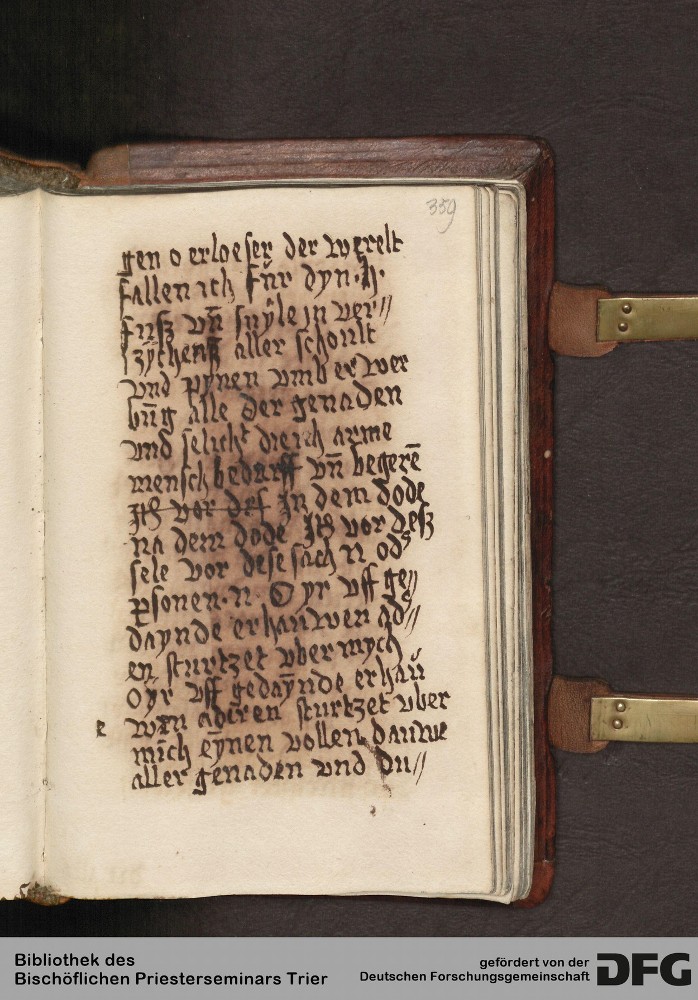 359
gen o erloeser der werelt
fallen ich fur dyn .h.
fusz vn̄ suyle in ver//
zychensz aller schoult
und pynen umb er wer
būg alle der genaden
und selicht die ich arme
mensch bedarff vn̄ begerē
vor des In dem dode
na dem dode vor desz
sele vor dese sach n od
psonen .n. O yr uff ge//
daynde erhauwen ad//
en sturtzet uber mych
O yr uff gedaynde erhau
e wen aderen sturtzet uber
mich eynen vollen dauwe
aller genaden und du//
Bibliothek des
Bischöflichen Priesterseminars Trier
gefördert von der
Deutschen Forschungsgemeinschaft
DFG